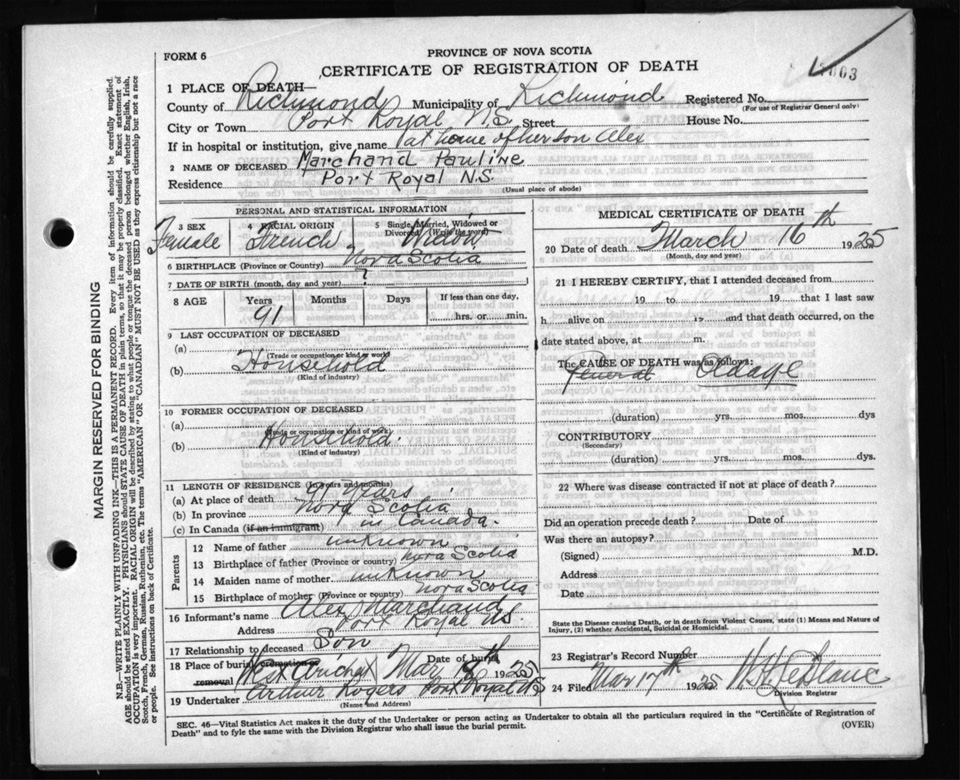 FORM 6
PROVINCE OF NOVA SCOTIA
CERTIFICATE OF REGISTRATION OF DEATH
003
1 PLACE OF DEATH—
County of Richmond Municipality of Richmond Registered No.
(For use of Registrar General only)
City or Town Port Royal N.S. Street House No.
If in hospital or institution, give name at home of her son Alex
2 NAME OF DECEASED Marchand Pauline
Residence Port Royal N.S.
(Usual place of abode)
PERSONAL AND STATISTICAL INFORMATION
3 SEX 4 RACIAL ORIGIN 5 Single, Married, Widowed or Divorced (Write the word)
Female French Widow
6 BIRTHPLACE (Province or Country) Nova Scotia
7 DATE OF BIRTH (month, day and year) ?
8 AGE Years Months Days If less than one day,
91 hrs. or min.
9 LAST OCCUPATION OF DECEASED
(a)
(Trade or occupation or kind of work)
(b) Household
(Kind of industry)
10 FORMER OCCUPATION OF DECEASED
(a)
(Trade or occupation or kind of work)
(b) Household.
(Kind of industry)
11 LENGTH OF RESIDENCE (In years and months)
(a) At place of death 91 years
(b) In province Nova Scotia
(c) In Canada (if an immigrant) in Canada.
Parents
12 Name of father unknown
13 Birthplace of father (Province or country) Nova Scotia
14 Maiden name of mother unknown
15 Birthplace of mother (Province or country) Nova Scotia
16 Informant's name Alex Marchand
Address Port Royal N.S.
17 Relationship to deceased Son
18 Place of burial, cremation or removal West Arichat Date of burial Mar 18th 1935
19 Undertaker Arthur Rogers Port Royal N.S
(Name and Address)
MEDICAL CERTIFICATE OF DEATH
20 Date of death March 16th 1935
(Month, day and year)
21 I HEREBY CERTIFY, that I attended deceased from
19 to 19 that I last saw
h alive on 19 and that death occurred, on
date stated above, at m.
The CAUSE OF DEATH was as follows:
General Oldage
(duration) yrs. mos. dys
CONTRIBUTORY
(Secondary)
(duration) yrs. mos. dys.
22 Where was disease contracted if not at place of death?
Did an operation precede death? Date of
Was there an autopsy?
(Signed) M.D.
Address
Date
State the Disease causing Death, or in death from Violent Causes, state (1) Means and Nature of Injury, (2) whether Accidental, Suicidal or Homicidal.
23 Registrar's Record Number
24 Filed Mar 17th 1935 W. H. LeBlanc
Division Registrar
SEC. 46—Vital Statistics Act makes it the duty of the Undertaker or person acting as Undertaker to obtain all the particulars required in the "Certificate of Registration of
Death" and to fyle the same with the Division Registrar who shall issue the burial permit. (OVER)
MARGIN RESERVED FOR BINDING
N.B.—WRITE PLAINLY WITH UNFADING INK—THIS IS A PERMANENT RECORD. Every item of information should be carefully supplied.
AGE should be stated EXACTLY. PHYSICIANS should STATE CAUSE OF DEATH in plain terms, so that it may be properly classified. Exact statement of
OCCUPATION is very important. RACIAL ORIGIN will be described by stating to what people or tongue the deceased person belonged whether English, Irish,
Scotch, French, German, Russian, Ruthenian, etc. The terms "AMERICAN" OR "CANADIAN" MUST NOT BE USED as they express citizenship but not a race
or people. See instructions on back of Certificate.